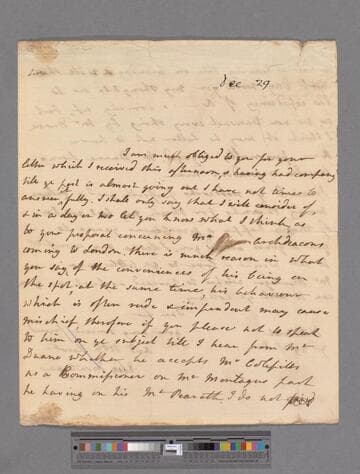 Sir
Dec 29
I am much obliged to you for your
letter which I received this afternoon, & having had company
till ye post is almost going out I have not time to
answer fully. I shall only say, that I will consider of,
& in a day or two let you know what I think as
to your proposal concerning Mr Archdeacons
coming to London there is much reason in what
you say, of the conveniences of his being on
the spot at the same time, his behaviour
which is often rude & impendent may cause
mischief therefore if you please not to speak
to him on ye subject till I hear from Mr
Duane whether he accepts Mr Colpitts
as a Commissioner on Mr Montagus part
he having on his Mr Peareth I do not